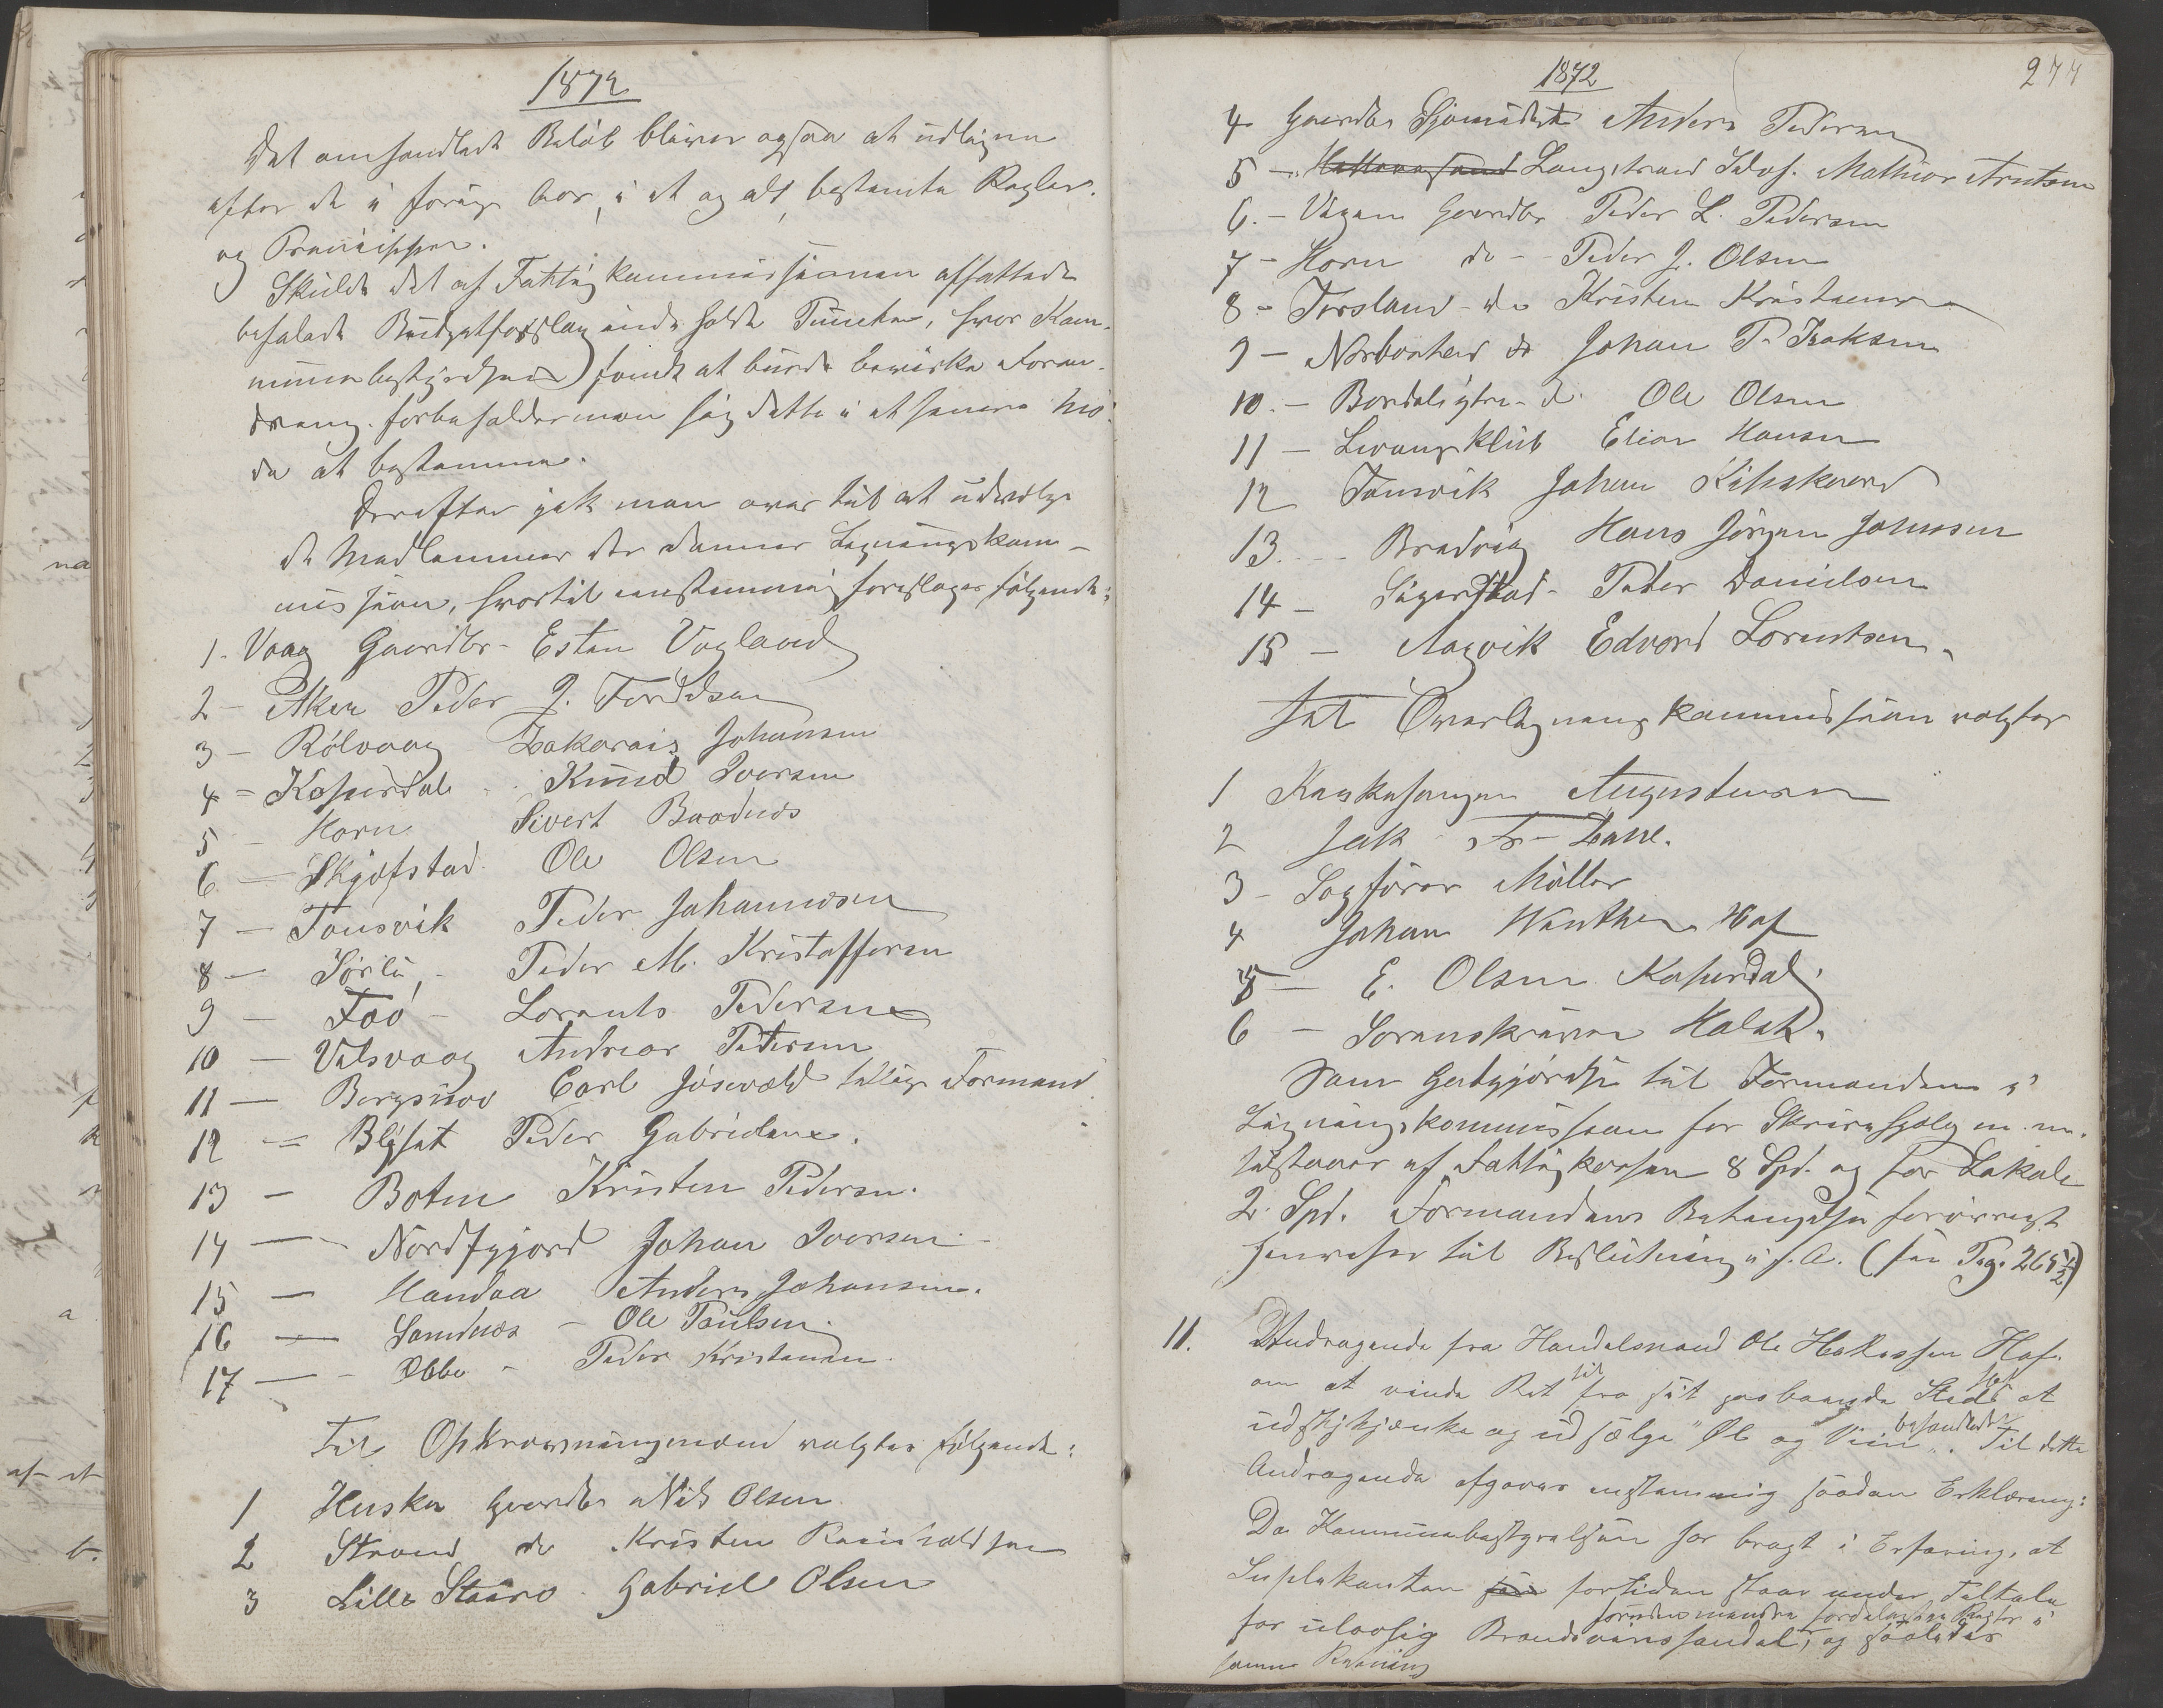 1872
Det omhandlede Beløb bliver ogsaa at udligne
efter de i forige Aar, i et og alt, bestemte Regler
og Principper.
Skulde det af Fattigkommissionen affattede
befalede Budgetforslag inde holde Puncter, hvor Kom-
munebestyrelsen fandt at burde bevirke Foran-
dring forbeholder man sig dette i et senere Mø-
de at bestemme.
Derefter gik man over til at udvælge
de Medlemmer der danner Ligningskom-
missjon, hvortil enstemmig foreslages følgende:
1. Vaag Gaardbr. Esten Vagland
2 - Aker Peder J.
3 - Rølvaag Zakarias Johansen
4 - Kopardal Knud Iversen
5 - Horn Sivert Baadnes
6 - Skjefstad Ole Olsen
7 - Tonsvik Peder Johannesen
8 - Sørli, - Peder M. Kristoffersen
9 - Foø - Lorents Pedersen
10 - Valsvaag Andreas Petersen
11 - Bergsnov Carl tillige Formand
12 - Peder Gabrielsen.
13 - Boten Kristen Pedersen.
14 - Nordfjord Johan Iversen
15 - Handaa Anders Johansen.
16 - Sandnes - Ole Paulsen.
17 - Ebbe - Peder Kristensen.
Til Opkrævningsmænd valgtes følgende:
1 Husker Gaardbr Nils Olsen
2 Strand do Kristen Reinholdsen
3 Lille Gabriel Olsen
1872
277
4 Gaardbr Anders Pedersen
5 - Langstrand Mathias Arntsen
6. - Vågan Gaardbr Peder L. Pedersen
7 - Horn do - Peder J. Olsen
8 - Forsland - do Kristen Kristensen
9 - do Johan P. Isaksen
10. - do Ole Olsen
11 - Elias Hansen
12 Tonsvik Johan
13. - Bredvig Hans Jørgen Johnsen
14 - Sigerstad - Peter Danielsen
15 - Aagvik Edvard Lorentsen.
Til Overligningskommissjon valgtes
1 Kirkesanger Augustinsen
2 Jak Fr. Zahl.
3 - Sagfører Møller
4 Johan Hof
5 - E. Olsen Kopardal
6 - Lorenskriver Holst.
Som Godtgjørelse til Formanden i
Ligningskommissjon for Skrivehjælp m. m.
tilstaaes af Fattigkassen 8 Spd. og for Lokale
2 Spd. Formandens Betænkelse forøvrigt
henviser til Beslutning i f. A. (se Pag. 265½)
11. Andragende fra Handelsmand Ole Hakassen Hof.
om at vinde Ret til fra sit paaboende Sted at
udskjænke og udsælge "Øl og Vin" behandledes. Til dette
Andragende afgaves enstemmig saadan Erklæring:
Da Kommunebestyrelsen har bragt i Erfaring, at
Suplikanten fortiden staar under Tiltale
for ulovlig Brændevinshandel, og saaledes
samme Retning